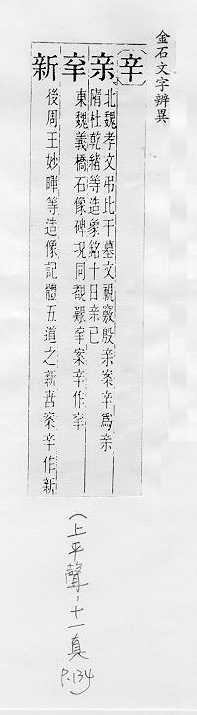 金石文字辨異
(辛)
亲 北魏孝文弔比干墓文視竅殷亲案辛爲亲
隋杜乾緒等造象銘十日亲巳
東魏義橋石像碑況同艱案辛作
新 後周王妙暉等造像記體五道之新苦案辛作新
(上平聲・十一真 P.134)